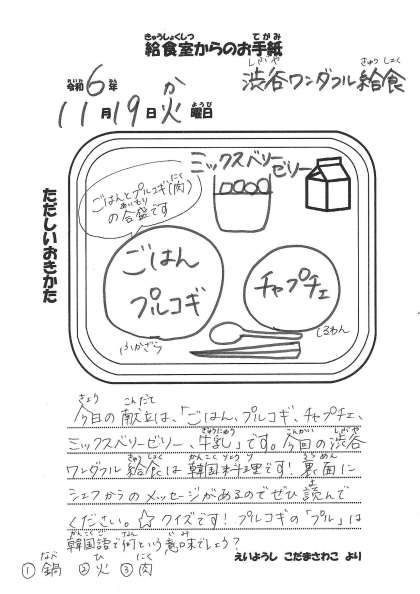 きゅうしょくしつ てがみ
給食室からのお手紙
しぶや きゅうしょく
渋谷ワンダフル給食
れいわ ねん
令和6年 か
11月19日火曜日
ようび
ミックスベリー
ゼリー
ごはんとプルコギ(肉)
の合盛です
ただしいおきかた
ごはん
プルコギ
チャプチェ
ふかざら
しるわん
きょう こんだて
今日の献立は、「ごはん、プルコギ、チャプチェ、
ぎゅうにゅう こんかい しぶや
ミックスベリーゼリー、牛乳」です。今回の渋谷
きゅうしょく かんこくりょうり うらめん
ワンダフル給食は韓国料理です!裏面に
よ
シェフからのメッセージがあるのでぜひ読んで
ください。☆クイズです!プルコギの「プル」は
かんこくご なん いみ
韓国語で何という意味でしょう?
なべ ひ にく
①鍋 ②火 ③肉
えいようし こだまさわこ より